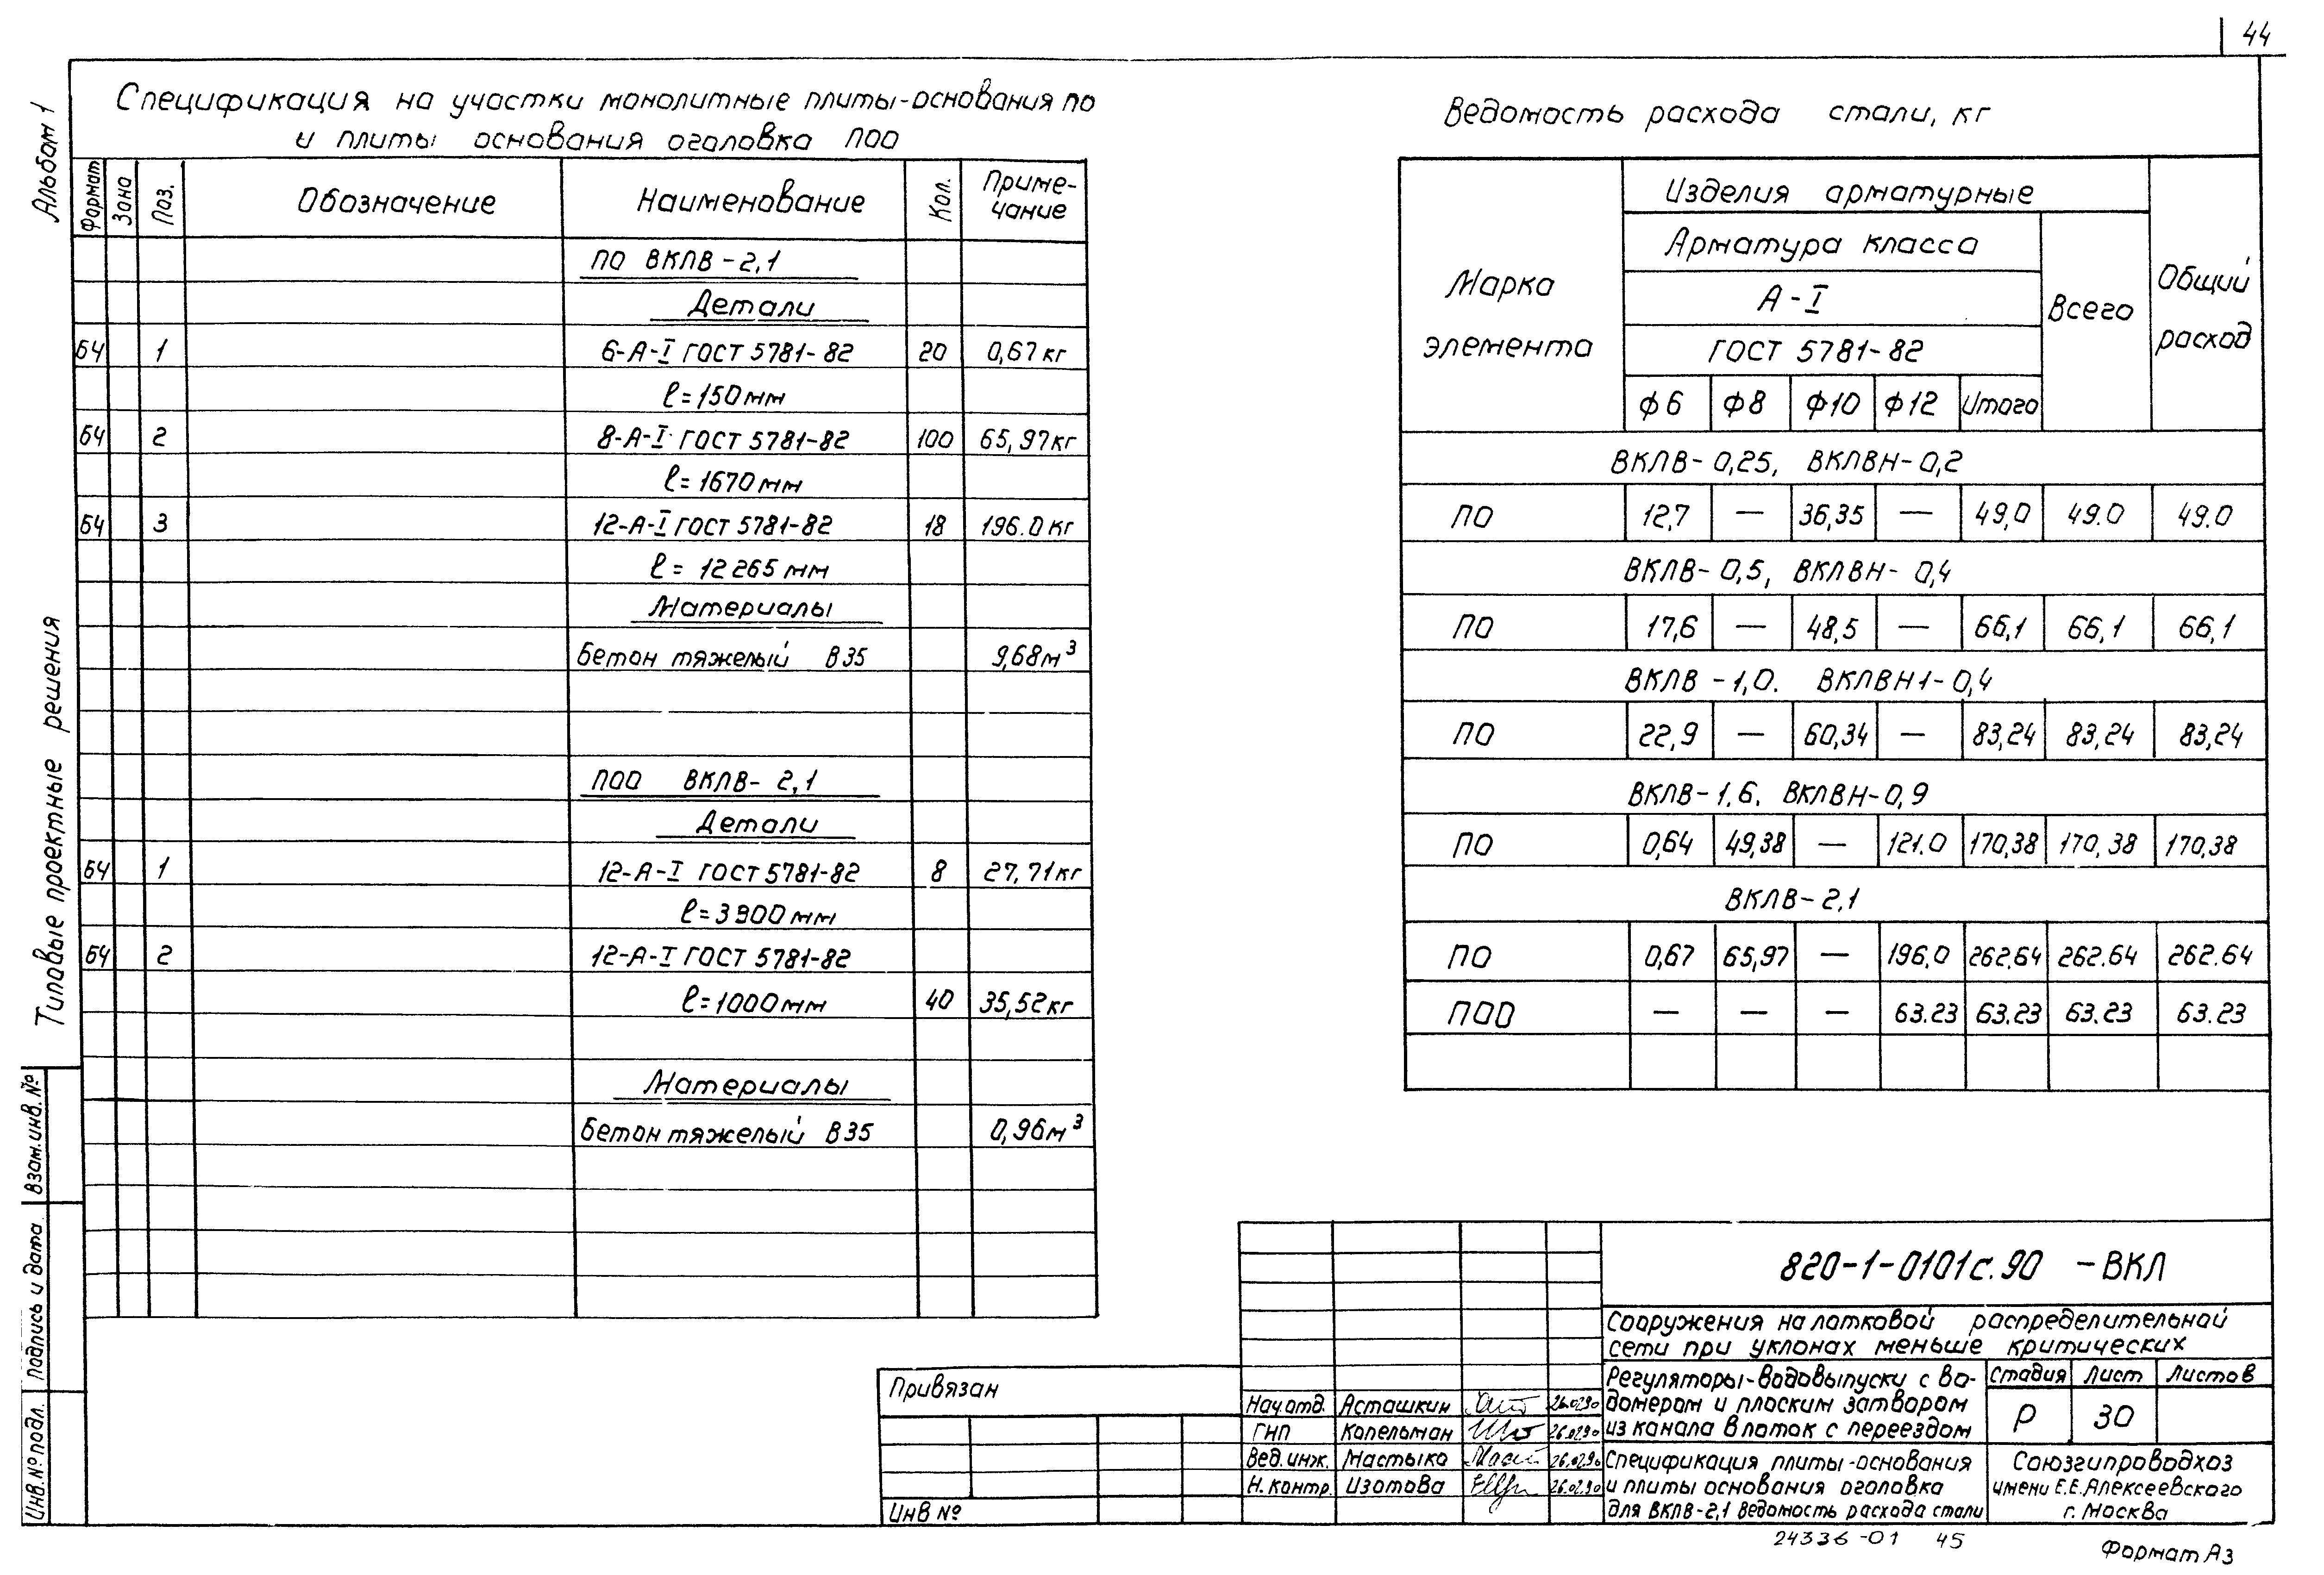 44
Альбом 1
Типовые проектные решения
Взам.инв.№
Подпись и дата
Инв.№подл.
Спецификация на участки монолитные плиты-основания ПО
и плиты основания оголовка ПОО
Формат Зона Поз. Обозначение Наименование Кол. Приме-
чание
ПО ВКЛВ-2,1
Детали
БЧ 1 6-А-I ГОСТ 5781-82 20 0,67кг
ℓ=150мм
БЧ 2 8-А-I ГОСТ 5781-82 100 65,97кг
ℓ=1670мм
БЧ 3 12-А-I ГОСТ 5781-82 18 196.0кг
ℓ= 12265мм
Материалы
Бетон тяжелый В35 9,68м³
ПОО ВКЛВ- 2,1
Детали
БЧ 1 12-А-I ГОСТ 5781-82 8 27,71кг
ℓ=3900мм
БЧ 2 12-А-I ГОСТ 5781-82
ℓ=1000мм 40 35,52кг
Материалы
Бетон тяжелый В35 0,96м³
Ведомость расхода стали, кг
Марка
элемента
Изделия арматурные
Арматура класса
А-I
ГОСТ 5781-82
Всего
Общий
расход
ф6 ф8 ф10 ф12 Итого
ВКЛВ-0,25, ВКЛВН-0,2
ПО 12,7 — 36,35 — 49,0 49.0 49.0
ВКЛВ-0,5, ВКЛВН-0,4
ПО 17,6 — 48,5 — 66,1 66,1 66,1
ВКЛВ-1,0. ВКЛВН1-0,4
ПО 22,9 — 60,34 — 83,24 83,24 83,24
ВКЛВ-1,6, ВКЛВН-0,9
ПО 0,64 49,38 — 121.0 170,38 170,38 170,38
ВКЛВ-2,1
ПО 0,67 65,97 — 196,0 262.64 262.64 262.64
ПОО — — — 63.23 63.23 63.23 63.23
Привязан
Инв №
Нач.отд. Асташкин 26.02.90
ГНП Копельман 26.02.90
Вед.инж. Мастыко 26.02.90
Н.контр. Изотова 26.02.90
820-1-0101с.90 -ВКЛ
Сооружения на лотковой распределительной
сети при уклонах меньше критических
Регуляторы-водовыпуски с во-
домером и плоским затвором
из канала в лоток с переездом
Стадия Лист Листов
Р 30
Спецификация плиты-основания
и плиты основания оголовка
для ВКЛВ-2,1 Ведомость расхода стали
Союзгипроводхоз
имени Е.Е.Алексеевского
г. Москва
24336-01 45
Формат А3